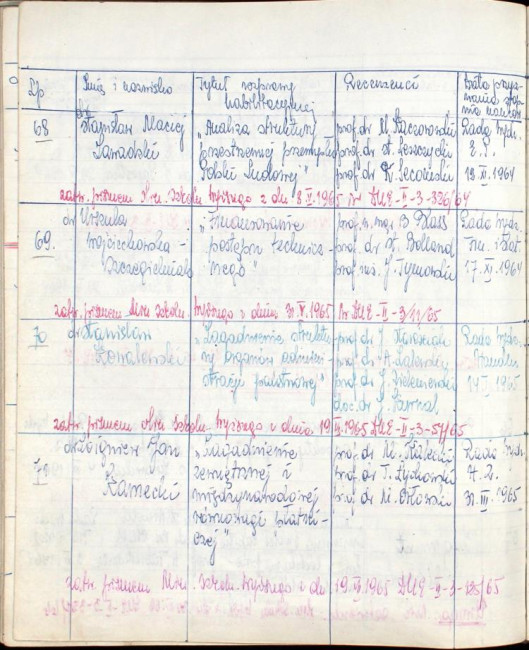 Lp Imię i nazwisko Tytuł rozprawy habilitacyjnej Recenzenci Data
68 dr Stanisław Maciej Zawadzki
„Analiza struktury
przestrzennej przemysłu
Polski Ludowej"
prof. dr M. Kaczorowski
prof. dr St. Leszczycki
prof. dr K. Secomski
Rada Wydz.
E. P.
18. XII 1964
zatw. pismem Min. Szkoln. Wyższego z dn. 8. V. 1965 nr DUE-II-3-386/64
69. dr Urszula
Wojciechowska -
Szczegielniak
„Finansowanie
postępu technicz-
nego"
prof. mgr B. Blass
prof. dr Z. Bolland
prof. inż. J. Tymowski
Rada Wydz.
Fin. i Stat.
17. XI 1964
zatw. pismem Min. Szkoln. Wyższego z dnia 31. V. 1965 Nr DUE-II-3/12/65
70 dr Stanisław
Kowalewski
„Zagadnienia struktu-
ry organów admini-
stracji państwowej"
prof. dr J. Starościak
prof. dr
prof. dr J. Zieleniewski
doc. dr
Rada Wydz.
Handlu
1965
zatw. pismem Min. Szkoln. Wyższego z dnia 19. VI. 1965 DUE-II-3-57/65
71 dr Zbigniew Jan
Kamecki
„Zagadnienie
zewnętrznej i
międzynarodowej
równowagi płatni-
czej"
prof. dr M. Kalecki
prof. dr T. Łychowski
prof. dr M. Orłowski
Rada Wydz.
H. Z.
31. III. 1965
zatw. pismem Min. Szkoln. Wyższego z dn. 19. VI. 1965 DUE-II-3-125/65